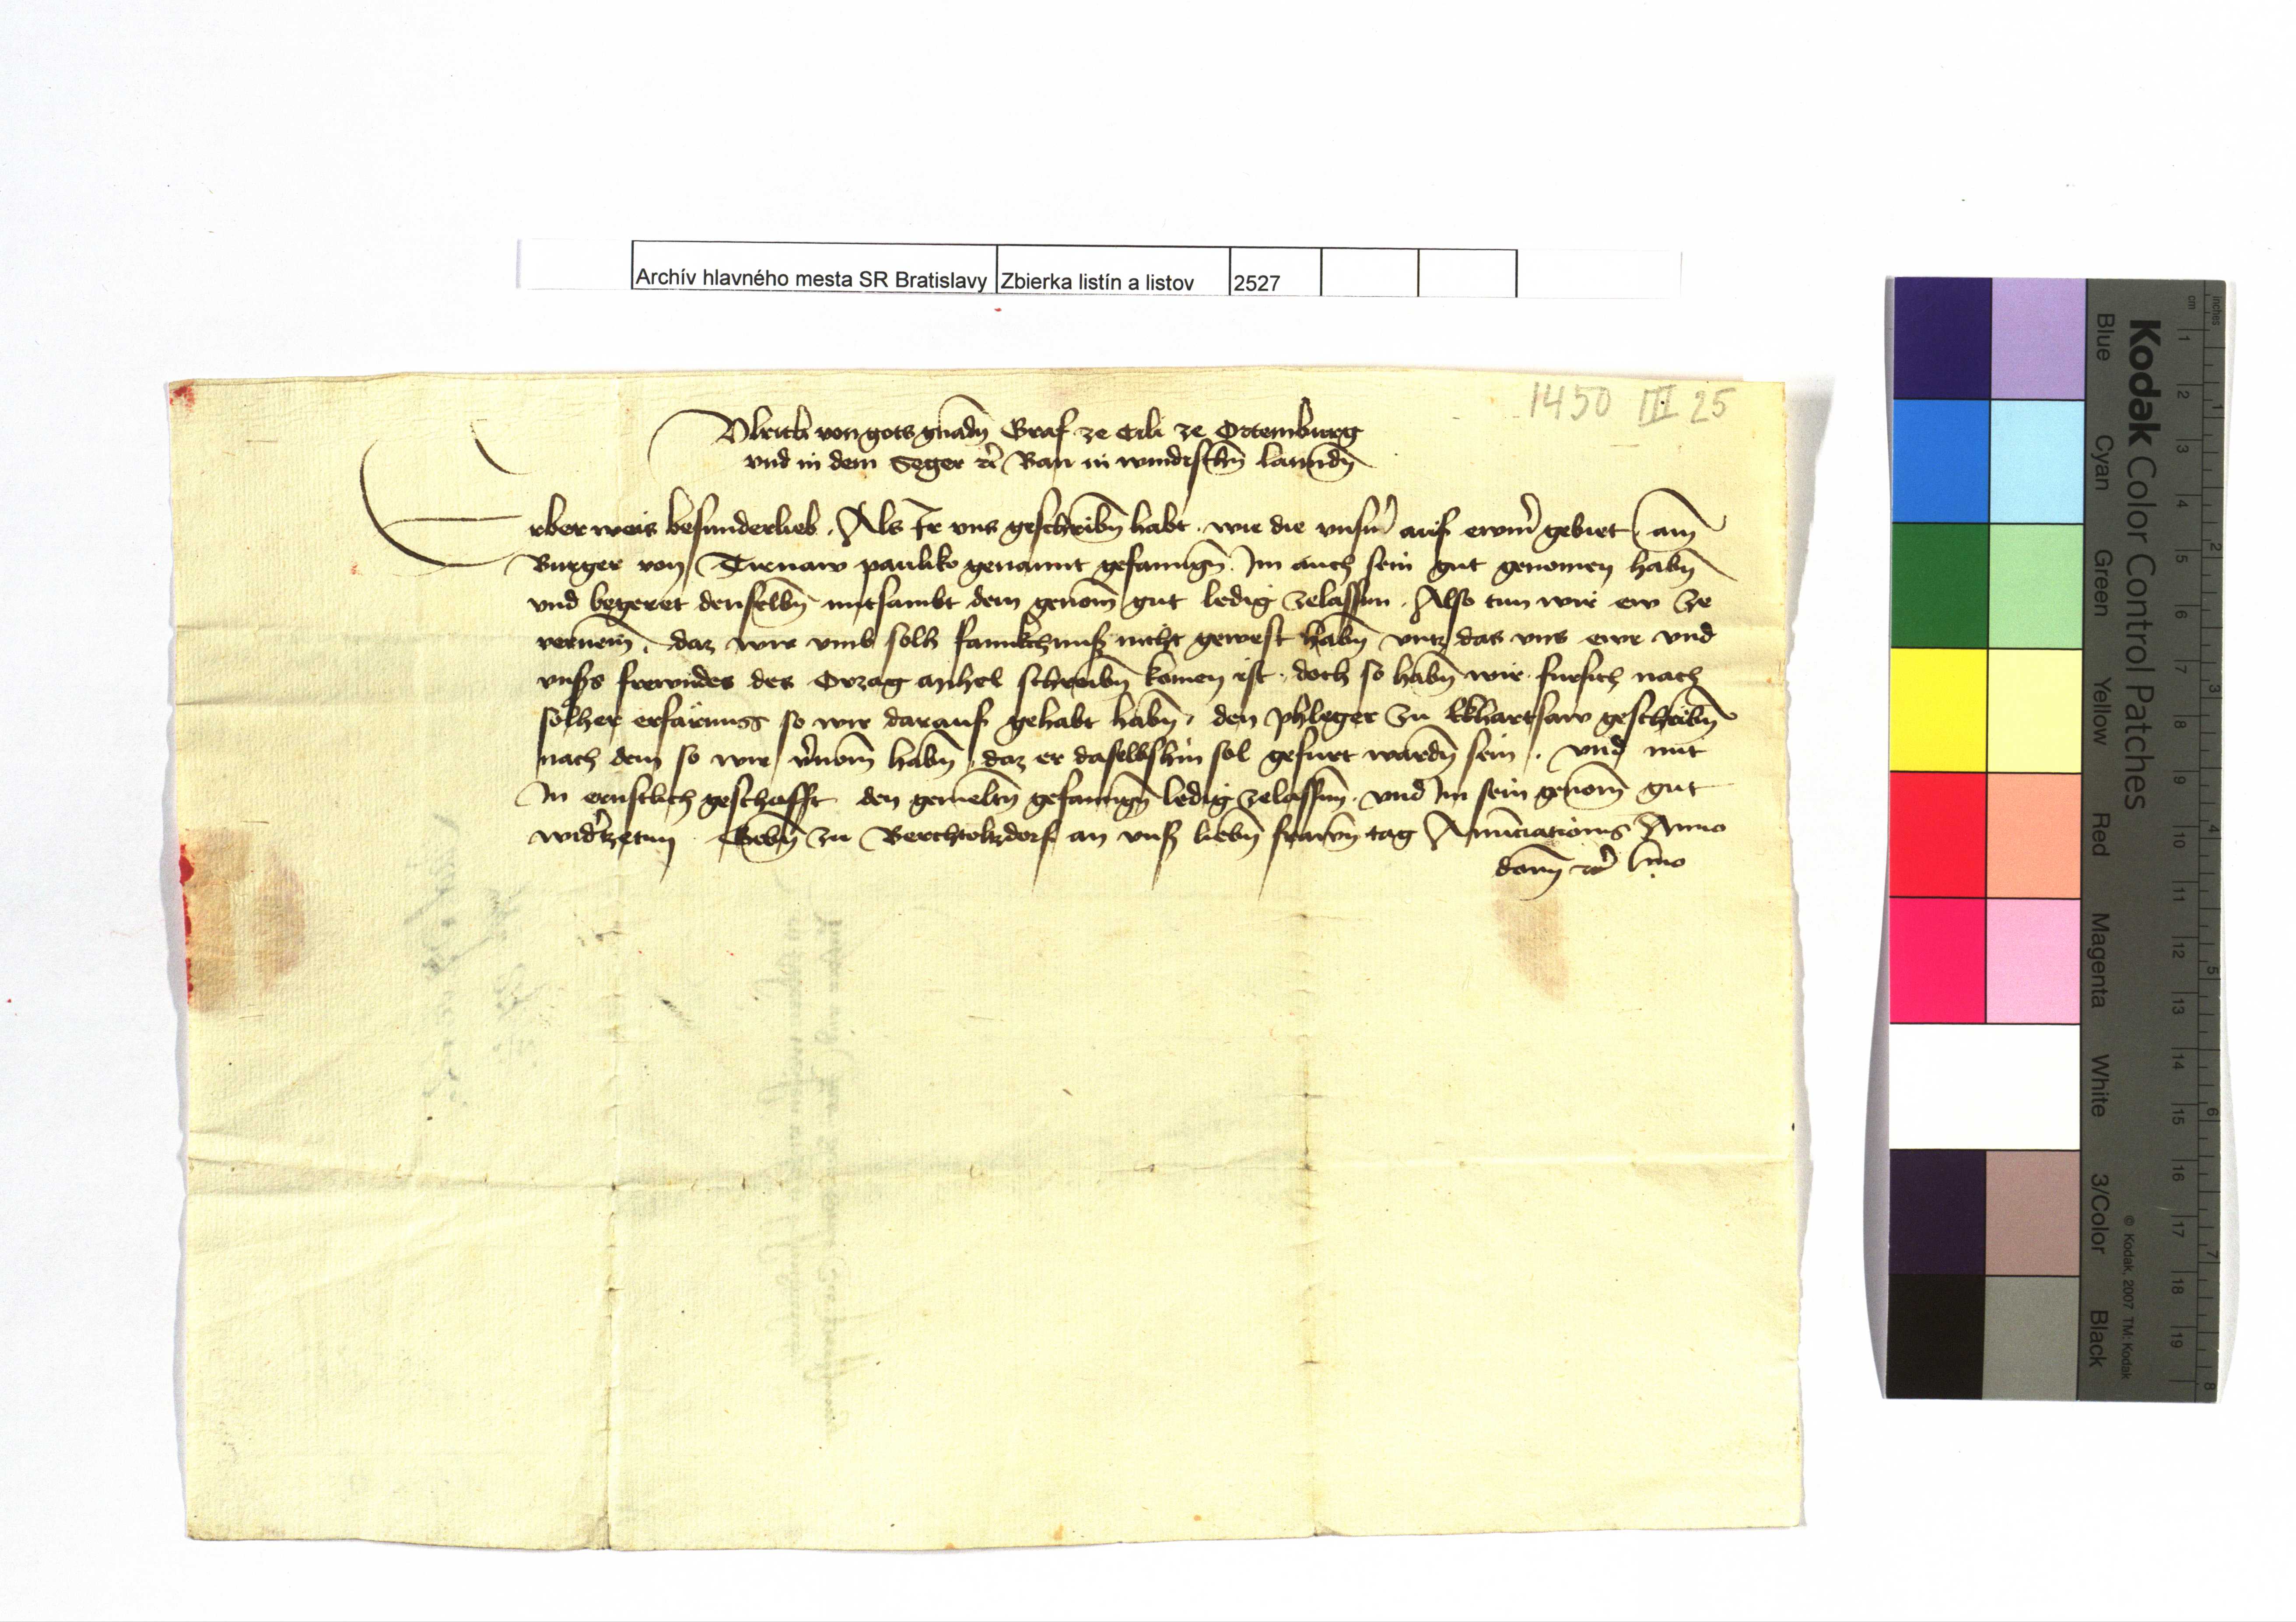 Archív hlavného mesta SR Bratislavy Zbierka listín a listov 2527
1450 III 25
Vlrich von gots gnadn̄ Graf ze Cili ze Ortemburg
vnd in dem Seger ꝛc̄ Ban in windischn̄ lannden̄
Erber weis besunderlieb. Als Ir vns geschribn̄ habt. wie die vnsern̄ auf ewrm̄ gebiet ain
Burger von Tirnaw pauliko genannt gefanngn̄. Im auch sein gut genomen habn̄
vnd begeret denselbn̄ mitsambt dem genom̄ gut ledig zelassen. Also tun wir ew ze
vernem̄. daz wir vmb solh fannkchnuß nicht gewest habn̄ vntz das vns ewr vnd
vnsers frewndes des Orzag mihel schreibn̄ komen ist. doch so habn̄ wir fursich nach
solher erfarnuss so wir darauf gehabt habn̄, den phleger zu Ekhartsaw geschribn̄
nach dem so wir v̄nom̄ habn̄, daz er daselbshin sol gefurt wardn̄ sein. vnd mit
Im ernstlich geschafft den gemeltn̄ gefanngn̄ ledig zelassen. vnd Im sein genom̄ gut
widerzetun. Gebn̄ zu Berchtolczdorf an vnser liebn̄ frawn̄ tag Anunciationis Anno
domī ꝛc̄ lmo
Kodak Color Control Patches
Blue Cyan Green Yellow Red Magenta White 3/Color Black
© Kodak, 2007 TM: Kodak
inches 1 2 3 4 5 6 7 8
cm 1 2 3 4 5 6 7 8 9 10 11 12 13 14 15 16 17 18 19